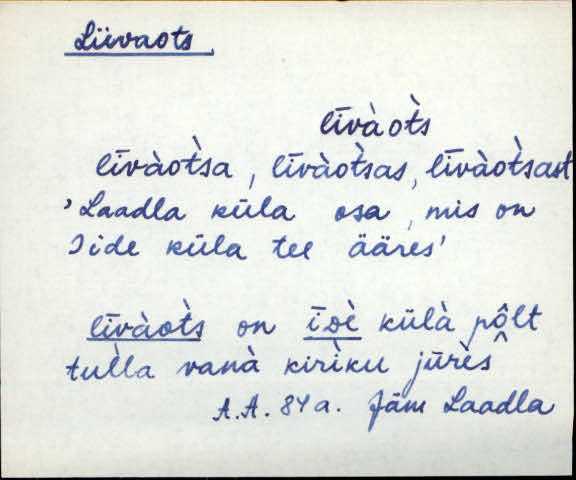 Liivaots
līvàot̀s
līvàot̀sa, līvàot̀sas, līvàot̀sast
'Laadla küla osa, mis on
Iide küla tee ääres'
līvàot̀s on īdè külà pôlt
tul̀la vanà kirìku jūrès
A.A. 84 a. Jäm Laadla